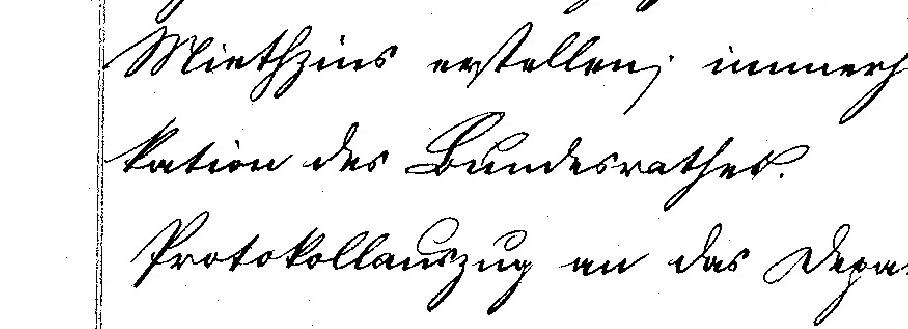 Miethzins erstellen; immerh
kation des Bundesrathes.
Protokollauszug an das Depa